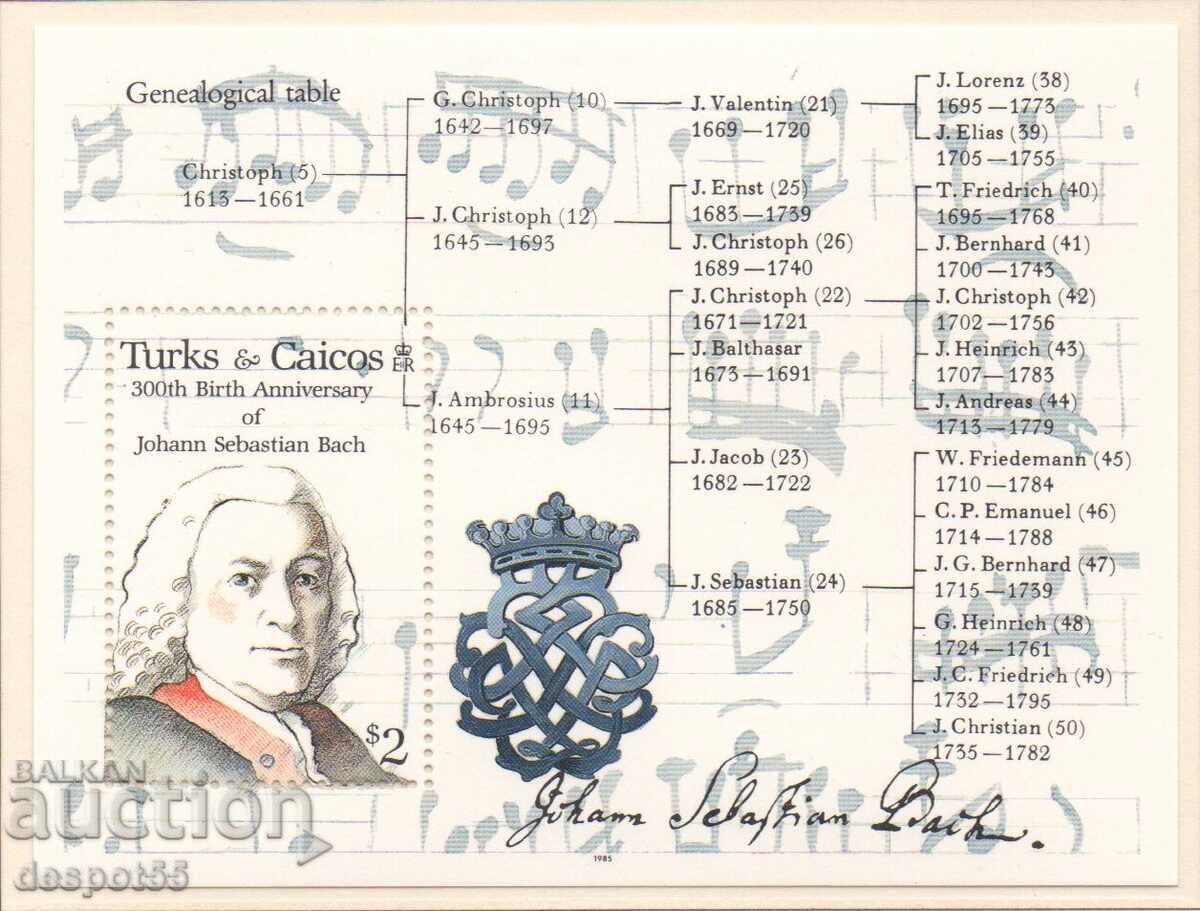 Genealogical table
Christoph (5)
1613—1661
G. Christoph (10)
1642—1697
J. Christoph (12)
1645—1693
J. Ambrosius (11)
1645—1695
J. Valentin (21)
1669—1720
J. Ernst (25)
1683—1739
J. Christoph (26)
1689—1740
J. Christoph (22)
1671—1721
J. Balthasar
1673—1691
J. Jacob (23)
1682—1722
J. Sebastian (24)
1685—1750
J. Lorenz (38)
1695—1773
J. Elias (39)
1705—1755
T. Friedrich (40)
1695—1768
J. Bernhard (41)
1700—1743
J. Christoph (42)
1702—1756
J. Heinrich (43)
1707—1783
J. Andreas (44)
1713—1779
W. Friedemann (45)
1710—1784
C. P. Emanuel (46)
1714—1788
J. G. Bernhard (47)
1715—1739
G. Heinrich (48)
1724—1761
J. C. Friedrich (49)
1732—1795
J. Christian (50)
1735—1782
Turks & Caicos EIIR
300th Birth Anniversary
of
Johann Sebastian Bach
$2
Johann Sebastian Bach.
1985
BALKAN
auction
despot55